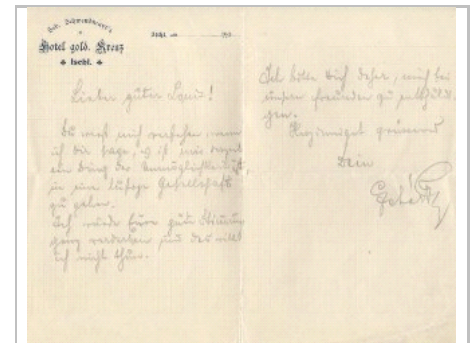 Hotel gold. Kreuz
Ischl.
Ischl, am
Lieber guter Louis!
Du wirst mich verstehen, wenn
ich dir sage, es ist mir derzeit
ein Ding der Unmöglichkeit
in eine lustige Gesellschaft
zu gehen.
Ich würde Eure gute Stimmung
ganz verderben und das will
ich nicht thun.
Ich bitte dich daher, mich bei
unsern Freunden zu entschuldi-
gen.
grüssend
Dein